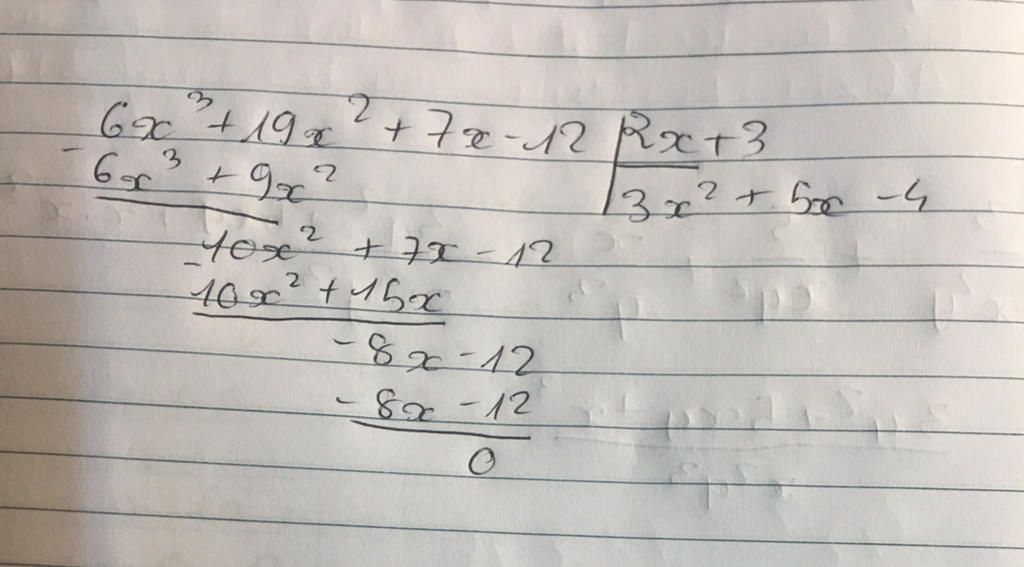 6x³ + 19x² + 7x - 12 | 2x + 3
- 6x³ + 9x² | 3x² + 5x - 4
- 10x² + 7x - 12
10x² + 15x
- 8x - 12
- 8x - 12
0